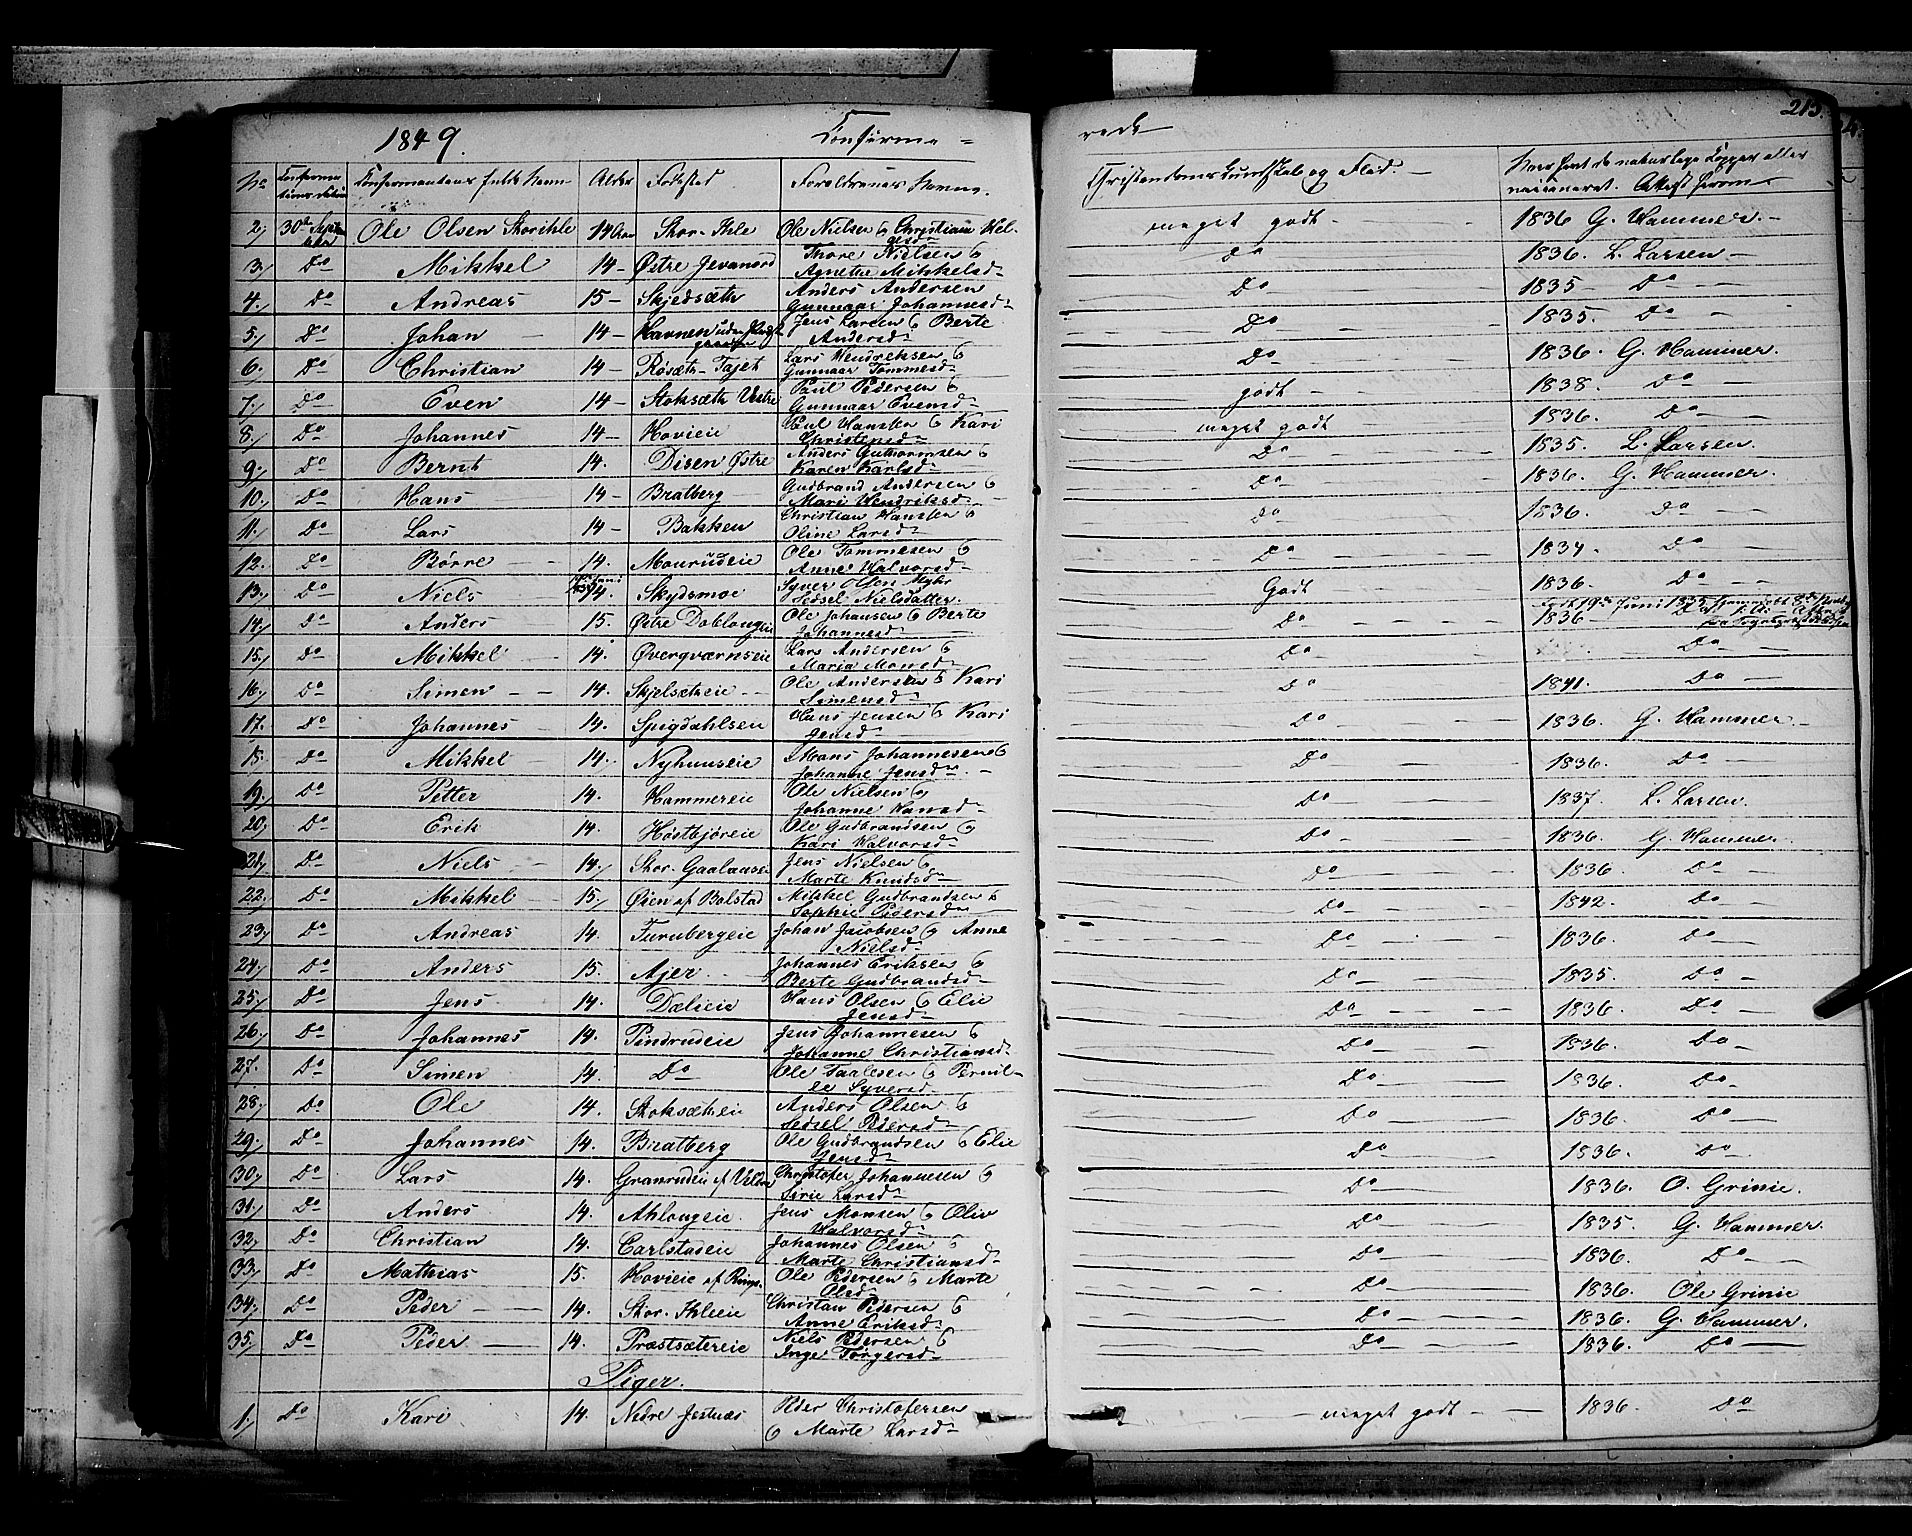 1849. Confirme=
rede
213.
No Confirmations datum Confirmantens fulde Navn Alder Fødested Forældrenes Navne.
Christendoms Kundskab og Flid. Hver havt de naturlige Kopper eller vaccineret. Attest herom
2, 30te September Ole Olsen Storihle 14 Aar Stor-Ihle Ole Nielsen & Christiane Hel-
gesd meget godt 1836 G. Hammer.
3, Do Mikkel 14 Østre Jevanord Thore Nielsen &
Agnethe Mikkelsd Do 1836. L. Larsen
4. Do Andreas 15 Skjedsæth Anders Andersen
Gunnaar Johannesd Do 1835 Do
5, Do Johan 14 Havnen Jens Larsen & Berte
Andersd Do 1835. Do
6. Do Christian 14 Røsæth-Tajet Lars Hendreksen &
Gunnaar Tommesd Do 1836. G. Hammer.
7, Do Even 14 Stoksæth Vestre Paul Pedersen &
Gunnaar Evensd godt 1838. Do
8, Do Johannes 14 Hovieie Poul Hansen & Kari
Christensd meget godt 1836. Do
9. Do Bernt 14. Disen Østre Anders Guthormsen &
Karen Karlsd Do 1835. L. Larsen.
10. Do Hans 14 Bratberg Gudbrand Andersen &
Mari Hendriksd Do 1836. G. Hammer.
11. Do Lars 14 Bakken Christian Hansen &
Oline Larsd Do 1836. Do
12. Do Børre 14. Mourudeie Ole Tommesen &
Anne Halvorsd Do 1834. Do
13. Do Niels 14. Skydsmoe Syver Olsen Myhr
Sidsel Nielsdatter. Godt 1836. Do
14. Do Anders 15. Østre Doblougeie Ole Johansen & Berte
Johannesd Do 1836
15. Do Mikkel 14. Øverqværnseie Lars Andersen &
Maria Monsd Do Do
16. Do Simen 14. Skjelsætheie Ole Andersen & Kari
Simensd Do 1841. Do
17. Do Johannes 14. Spigdahlseie Hans Jensen & Kari
Jensd Do 1836. G. Hammer.
18. Do Mikkel 14. Nyhuuseie Mons Johannesen &
Johanne Jensd Do 1836. Do
19. Do Petter 14. Hammereie Ole Nielsen &
Johanne Hansd Do 1837. L. Larsen.
20, Do Erik 14. Høstbjøreie Ole Gudbrandsen &
Kari Halvorsd Do 1836. G. Hammer.
21, Do Niels 14, Stor-Gaalaasen Jens Nielsen &
Marte Knudsd Do 1836 Do
22. Do Mikkel 15, Øien af Bolstad Mikkel Gudbrandsen &
Sophie Pedersd Do 1842. Do
23, Do Andreas 14. Furubergeie Johan Jacobsen & Anne
Nielsd Do 1836. Do
24, Do Anders 15. Ajer Johannes Eriksen &
Berte Gudbrandsd Do 1835. Do
25, Do Jens 14. Dælieie Hans Olsen & Elie
Jensd Do 1836. Do
26. Do Johannes 14. Pindrudeie Jens Johannesen &
Johanne Christiansd Do 1836. Do
27. Do Simen 14. Do Ole Paalesen & Pernil-
le Syversd Do 1836. Do
28, Do Ole 14. Stoksætheie Anders Olsen &
Sidsel Pedersd Do 1836. Do
29. Do Johannes 14. Bratberg Ole Gudbrandsen & Elie
Jensd Do 1836. Do
30, Do Lars 14. Granrudeie af Veldre Christofer Johannesen &
Sirie Larsd Do 1836. O. Grinie.
31. Do Anders 14. Ahlougeie. Jens Monsen & Oliv
Halvorsd Do 1835. G. Hammer.
32, Do Christian 14. Carlstadeie Johannes Olsen &
Marte Christiansd Do 1836. Do
33, Do Mathias 15. Hovieie af Rings. Ole Pedersen & Marte
Olsd Do 1836. Ole Grinie
34, Do Peder 14. Stor-Ihleeie Christian Pedersen &
Anne Eriksd Do 1836. G. Hammer.
35. Do Peder 14. Præstsætereie Niels Pedersen &
Inge Torgersd Do 1836. Do
Piger.
1, Do Kari 14. Nedre Jestnæs Peder Christofersen
& Marte Larsd meget godt 1836. Do